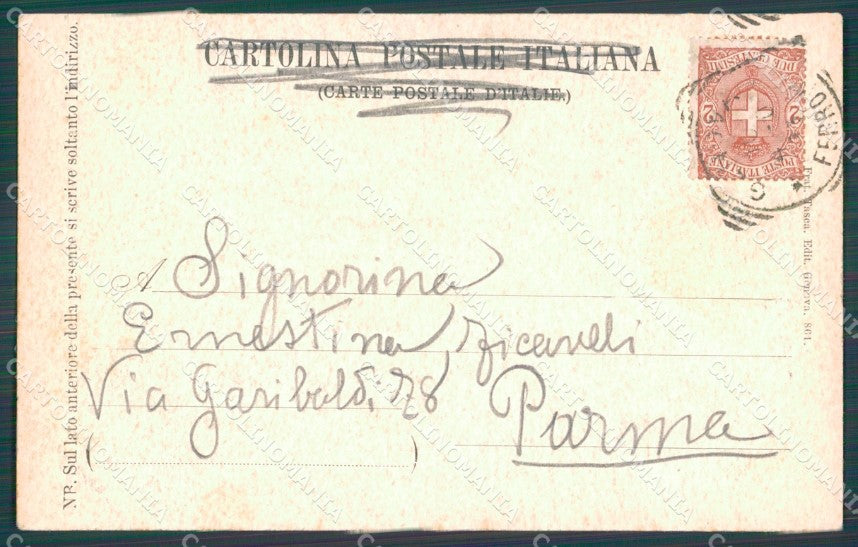 CARTOLINA POSTALE ITALIANA
(CARTE POSTALE D'ITALIE)
POSTE ITALIANE
2 2
DUE CENTESIMI
FERRO
A Signorina
Ernestina
Via Garibaldi 78
Parma
NB. Sul lato anteriore della presente si scrive soltanto l'indirizzo.
Frat. Tasca. Edit. Genova. 864.
CARTOLINOMANIA